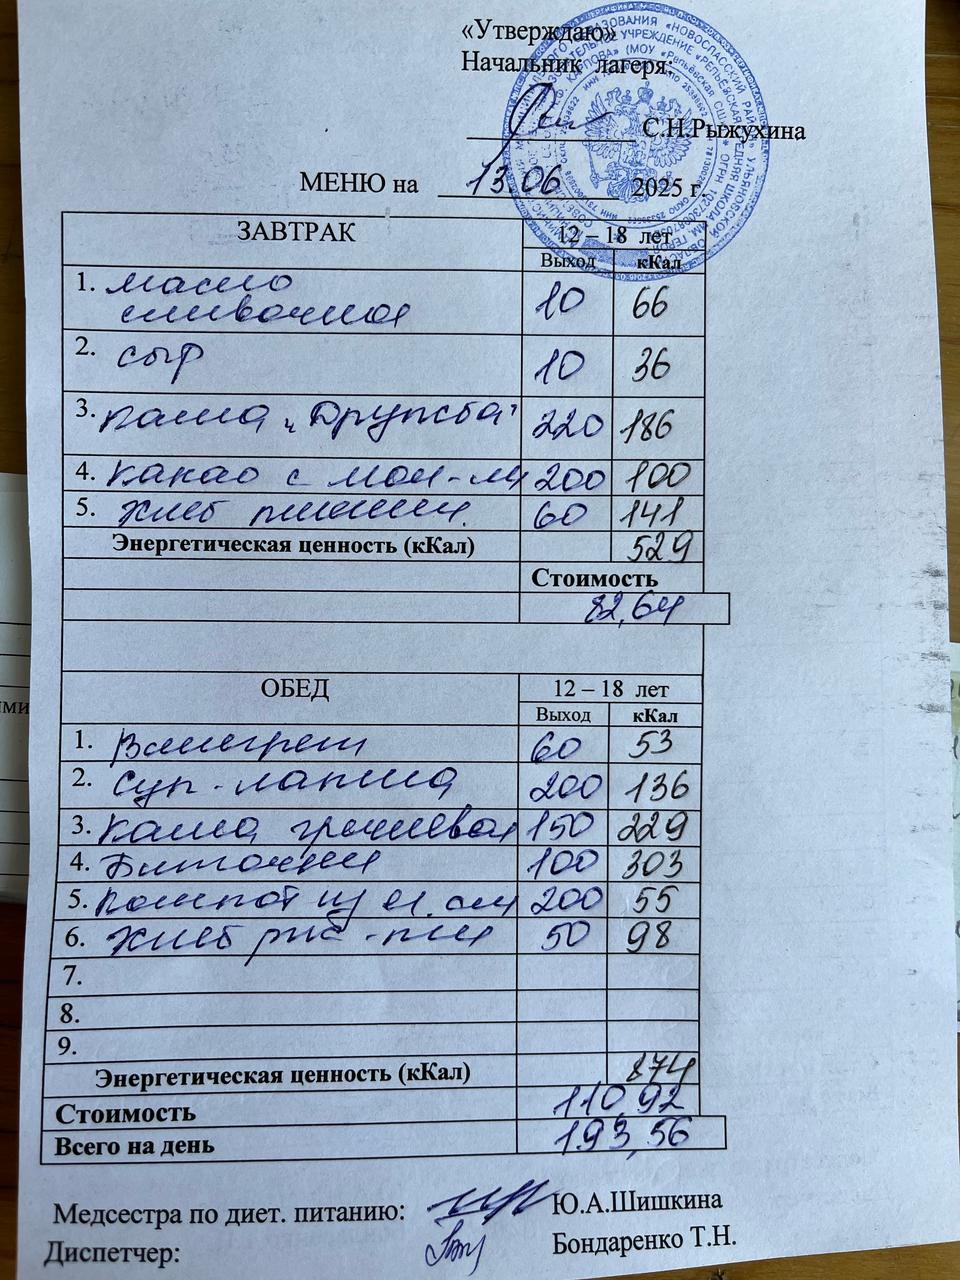 «Утверждаю»
Начальник лагеря:
С.Н.Рыжухина
МЕНЮ на 13.06 2025 г.
ЗАВТРАК 12 – 18 лет
Выход кКал
1. масло
сливочное 10 66
2. сыр 10 36
3. каша „Дружба" 220 186
4. какао с мол-м 200 100
5. хлеб пшенич. 60 141
Энергетическая ценность (кКал) 529
Стоимость
82,64
ОБЕД 12 – 18 лет
Выход кКал
1. Винегрет 60 53
2. суп-лапша 200 136
3. каша гречневая 150 229
4. Биточки 100 303
5. компот из 200 55
6. хлеб рж-пш 50 98
7.
8.
9.
Энергетическая ценность (кКал) 874
Стоимость 110,92
Всего на день 193,56
Медсестра по диет. питанию: Ю.А.Шишкина
Диспетчер: Бондаренко Т.Н.